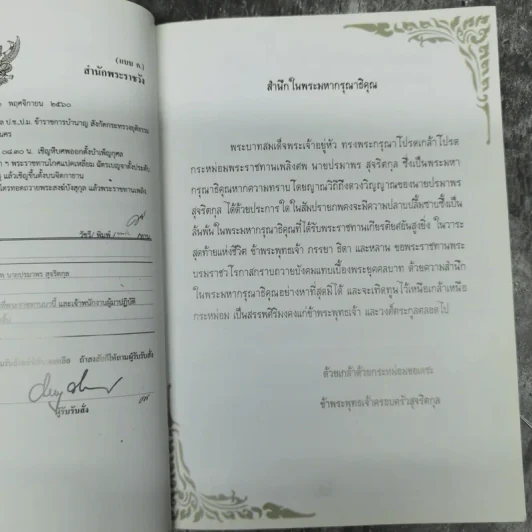 (แบบ ก.)
สำนักพระราชวัง
พฤศจิกายน ๒๕๖๐
ป.ช.,ป.ม. ข้าราชการบำนาญ สังกัดกระทรวงยุติธรรม
๐๘.๓๐ น. เชิญหีบศพออกตั้งบำเพ็ญกุศล
ฯ พระราชทานโกศแปดเหลี่ยม ฉัตรเบญจาตั้งประดับ
แล้วเชิญขึ้นตั้งบนจิตกาธาน
ไตรทอดถวายพระสงฆ์บังสุกุล แล้วพระราชทานเพลิง
วัชรี/พิมพ์
นายปรมาพร สุจริตกุล
และเจ้าพนักงานผู้มาปฏิบัติ
ถ้าสงสัยก็ให้ถามผู้รับรับสั่ง
ผู้รับรับสั่ง
สำนึกในพระมหากรุณาธิคุณ
พระบาทสมเด็จพระเจ้าอยู่หัว ทรงพระกรุณาโปรดเกล้าโปรด
กระหม่อมพระราชทานเพลิงศพ นายปรมาพร สุจริตกุล ซึ่งเป็นพระมหา
กรุณาธิคุณหากความทราบโดยญาณวิถีถึงดวงวิญญาณของนายปรมาพร
สุจริตกุล ได้ด้วยประการใด ในสัมปรายภพคงจะมีความปลาบปลื้มซาบซึ้งเป็น
ล้นพ้นในพระมหากรุณาธิคุณที่ได้รับพระราชทานเกียรติยศอันสูงยิ่ง ในวาระ
สุดท้ายแห่งชีวิต ข้าพระพุทธเจ้า ภรรยา ธิดา และหลาน ขอพระราชทานพระ
บรมราชวโรกาสกราบถวายบังคมแทบเบื้องพระยุคลบาท ด้วยความสำนึก
ในพระมหากรุณาธิคุณอย่างหาที่สุดมิได้ และจะเทิดทูนไว้เหนือเกล้าเหนือ
กระหม่อม เป็นสรรพสิริมงคงแก่ข้าพระพุทธเจ้า และวงศ์ตระกูลตลอดไป
ด้วยเกล้าด้วยกระหม่อมขอเดชะ
ข้าพระพุทธเจ้าครอบครัวสุจริตกุล